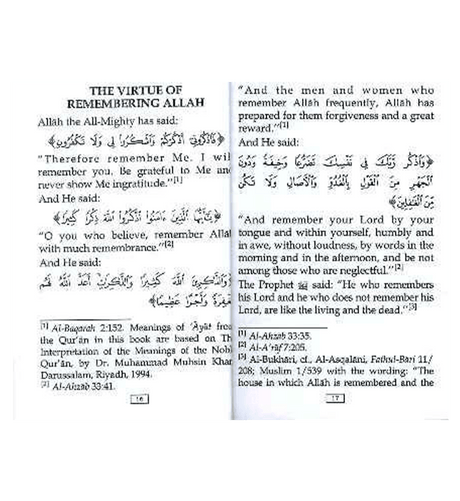 THE VIRTUE OF
REMEMBERING ALLAH
Allâh the All-Mighty has said:
﴿فَاذْكُرُونِي أَذْكُرْكُمْ وَاشْكُرُوا لِي وَلَا تَكْفُرُونِ﴾
"Therefore remember Me. I will
remember you. Be grateful to Me and
never show Me ingratitude."[1]
And He said:
﴿يَا أَيُّهَا الَّذِينَ ءَامَنُوا اذْكُرُوا اللَّهَ ذِكْرًا كَثِيرًا﴾
"O you who believe, remember Allâh
with much remembrance."[2]
And He said:
﴿وَالذَّاكِرِينَ اللَّهَ كَثِيرًا وَالذَّاكِرَاتِ أَعَدَّ اللَّهُ لَهُم
مَّغْفِرَةً وَأَجْرًا عَظِيمًا﴾
[1] Al-Baqarah 2:152. Meanings of 'Ayât from
the Qur'ân in this book are based on The
Interpretation of the Meanings of the Noble
Qur'ân, by Dr. Muhammad Muhsin Khan,
Darussalam, Riyadh, 1994.
[2] Al-Ahzab 33:41.
16
"And the men and women who
remember Allâh frequently, Allâh has
prepared for them forgiveness and a great
reward."[1]
And He said:
﴿وَاذْكُر رَّبَّكَ فِي نَفْسِكَ تَضَرُّعًا وَخِيفَةً وَدُونَ
الْجَهْرِ مِنَ الْقَوْلِ بِالْغُدُوِّ وَالْآصَالِ وَلَا تَكُن
مِّنَ الْغَافِلِينَ﴾
"And remember your Lord by your
tongue and within yourself, humbly and
in awe, without loudness, by words in the
morning and in the afternoon, and be not
among those who are neglectful."[2]
The Prophet ﷺ said: "He who remembers
his Lord and he who does not remember his
Lord, are like the living and the dead."[3]
[1] Al-Ahzab 33:35.
[2] Al-A'râf 7:205.
[3] Al-Bukhâri, cf. Al-Asqalâni, Fathul-Bari 11/
208; Muslim 1/539 with the wording: "The
house in which Allâh is remembered and the
17